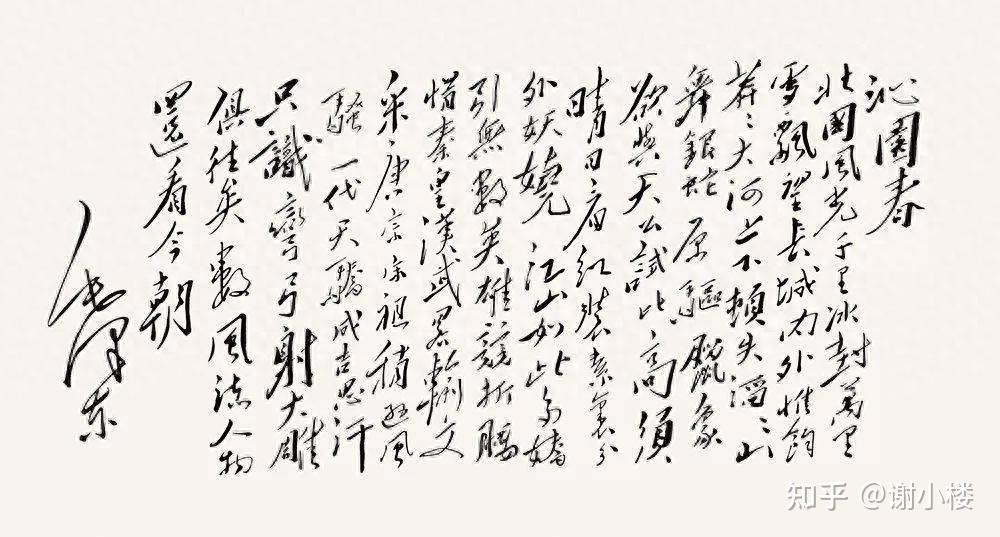 沁園春
北國風光千里冰封萬里
雪飄望長城內外惟餘
莽〻大河上下頓失滔〻山
舞銀蛇原驅臘象
欲與天公試比高須
晴日看紅裝素裹分
外妖嬈江山如此多嬌
引無數英雄競折腰
惜秦皇漢武略輸文
采唐宗宋祖稍遜風
騷一代天驕成吉思汗
只識彎弓射大雕
俱往矣數風流人物
還看今朝
毛澤東
知乎 @谢小楼